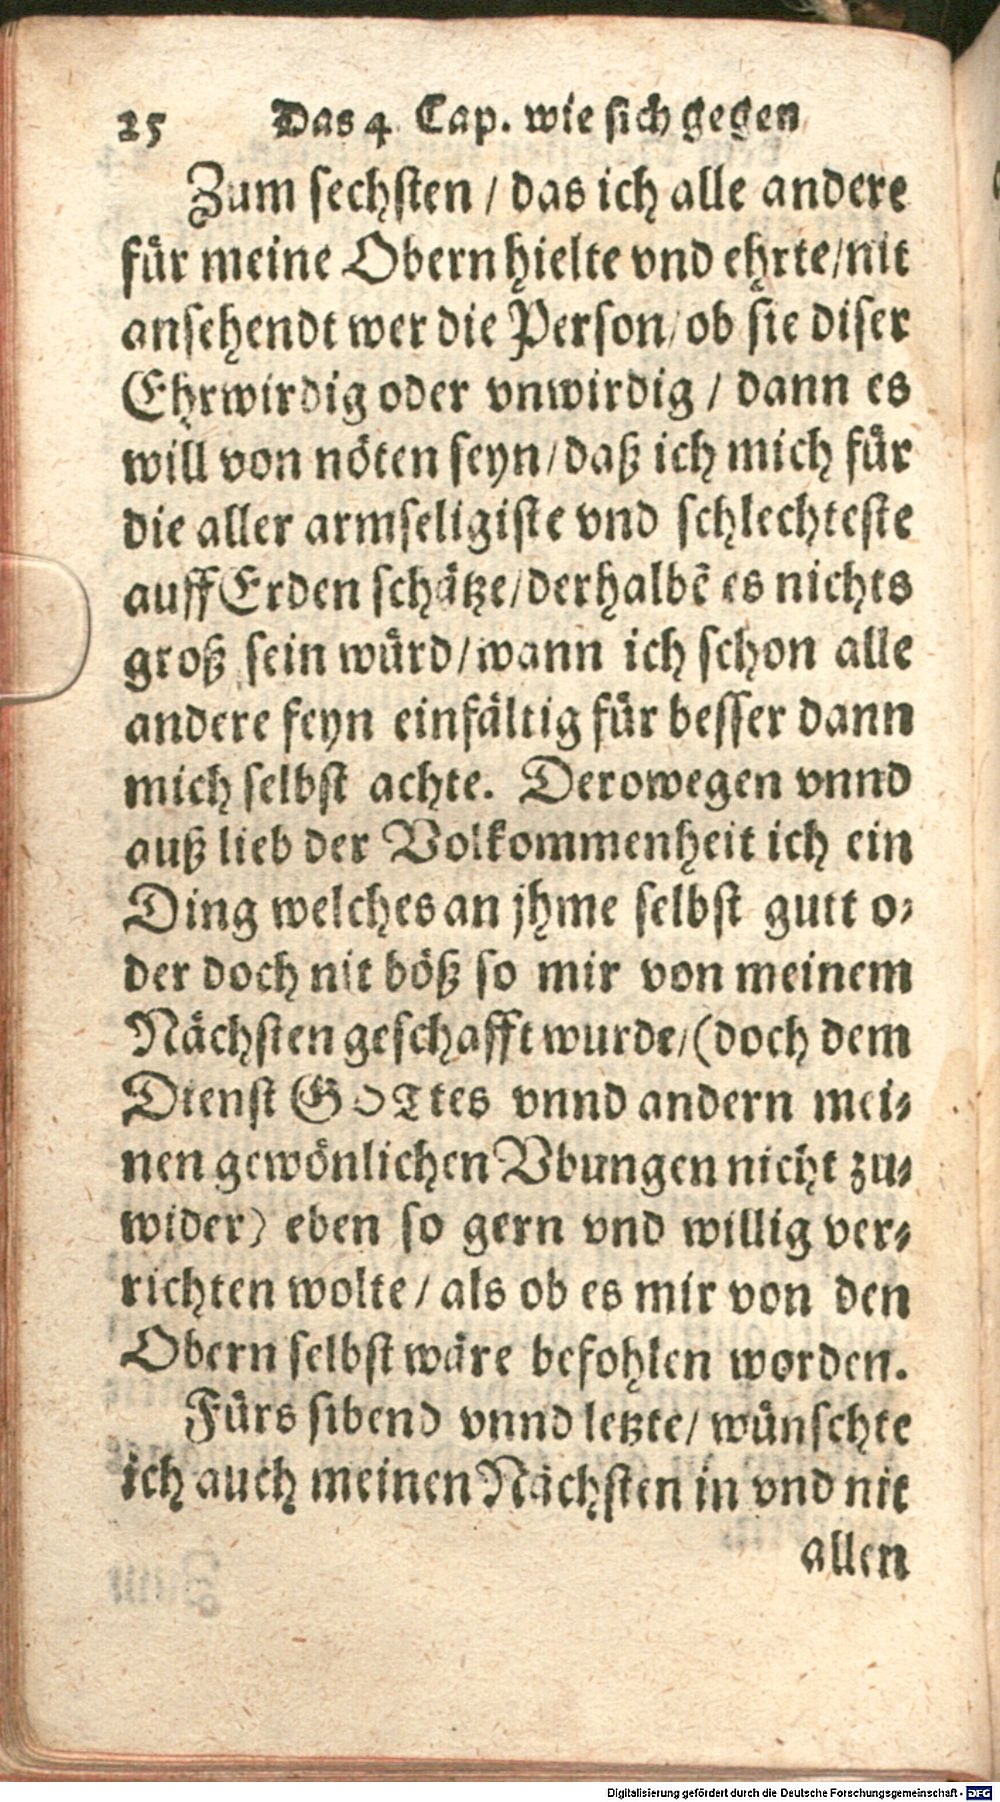 25 Das 4 Cap. wie sich gegen
Zum sechsten / das ich alle andere
für meine Obern hielte vnd ehrte/nit
ansehendt wer die Person/ob sie diser
Ehrwirdig oder vnwirdig / dann es
will von nöten seyn/daß ich mich für
die aller armseligiste vnd schlechteste
auff Erden schätze/derhalbẽ es nichts
groß sein würd/wann ich schon alle
andere feyn einfältig für besser dann
mich selbst achte. Derowegen vnnd
auß lieb der Volkommenheit ich ein
Ding welches an jhme selbst gutt o-
der doch nit böß so mir von meinem
Nächsten geschafft wurde/(doch dem
Dienst GOTtes vnnd andern mei-
nen gewönlichen Vbungen nicht zu-
wider) eben so gern vnd willig ver-
richten wolte / als ob es mir von den
Obern selbst wäre befohlen worden.
Fürs sibend vnnd letzte/ wünschte
ich auch meinen Nächsten in vnd nit
allen
Digitalisierung gefördert durch die Deutsche Forschungsgemeinschaft - DFG